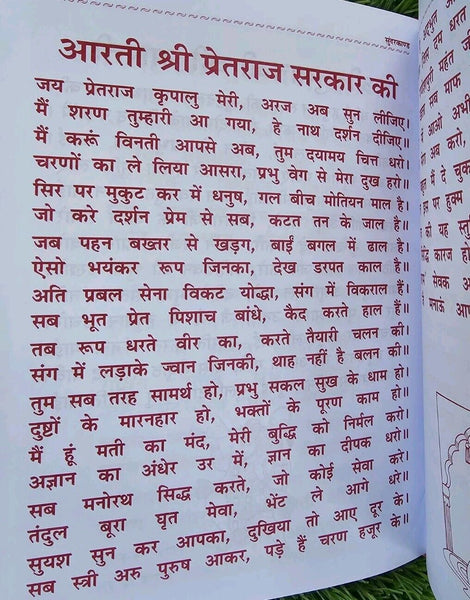 सुंदरकाण्ड
आरती श्री प्रेतराज सरकार की
जय प्रेतराज कृपालु मेरी, अरज अब सुन लीजिए।
मैं शरण तुम्हारी आ गया, हे नाथ दर्शन दीजिए।
मैं करूं विनती आपसे अब, तुम दयामय चित्त धरो।
चरणों का ले लिया आसरा, प्रभु वेग से मेरा दुख हरो॥
सिर पर मुकुट कर में धनुष, गल बीच मोतियन माल है।
जो करे दर्शन प्रेम से सब, कटत तन के जाल है॥
जब पहन बख्तर से खड़ग, बाईं बगल में ढाल है।
ऐसो भयंकर रूप जिनका, देख डरपत काल है॥
अति प्रबल सेना विकट योद्धा, संग में विकराल हैं।
सब भूत प्रेत पिशाच बांधे, कैद करते हाल हैं॥
तब रूप धरते वीर का, करते तैयारी चलन की।
संग में लड़ाके ज्वान जिनकी, थाह नहीं है बलन की॥
तुम सब तरह सामर्थ हो, प्रभु सकल सुख के धाम हो।
दुष्टों के मारनहार हो, भक्तों के पूरण काम हो॥
मैं हूं मती का मंद, मेरी बुद्धि को निर्मल करो।
अज्ञान का अंधेर उर में, ज्ञान का दीपक धरो॥
सब मनोरथ सिद्ध करते, जो कोई सेवा करे।
तंदुल बूरा घृत मेवा, भेंट ले आगे धरे॥
सुयश सुन कर आपका, दुखिया तो आए दूर के।
सब स्त्री अरु पुरुष आकर, पड़े हैं चरण हजूर के॥